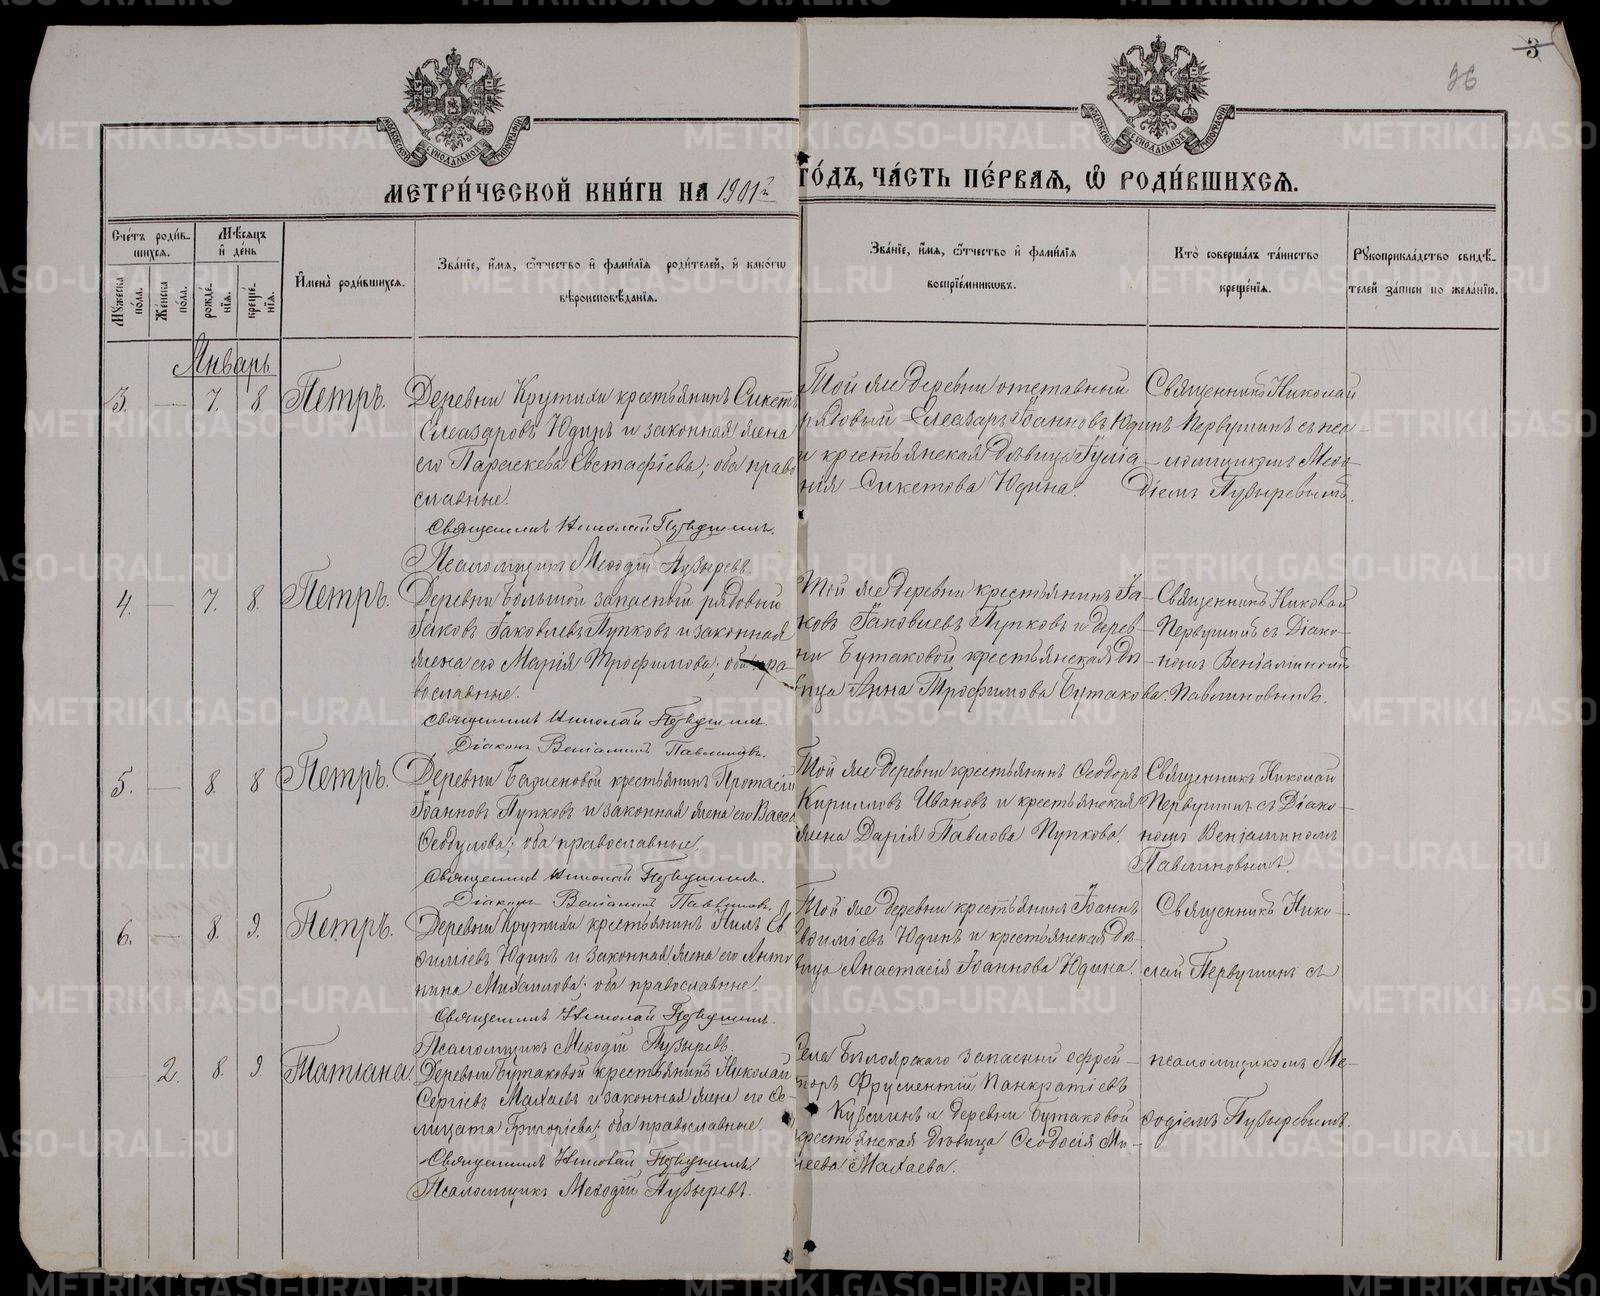 3
26
МЕТРИ́ЧЕСКОЙ КНИ́ГИ НА 1901й ГО́ДЪ, ЧА́СТЬ ПЕ́РВАЯ, Ѡ РОДИ́ВШИХСЯ.
Сче́тъ роди́вшихся.
Мѣ́сяцъ и де́нь
Му́жеска по́ла.
Же́нска по́ла.
рожде́нїя.
креще́нїя.
Имена̀ роди́вшихся.
Зва́нїе, и́мя, ѻ́тчество и фами́лїя роди́телей, и како́гѡ вѣроисповѣ́данїя.
Зва́нїе, и́мя, ѻ́тчество и фами́лїя воспрїе́мниковъ.
Кто̀ соверша́лъ та́инство креще́нїя.
Рукоприкла́дство свидѣ́телей за́писи по жела́нїю.
Январь
3. — 7. 8 Петръ.
Деревни Крутихи крестьянинъ Сикетъ
Елеазаровъ Юдинъ и законная жена
его Параскева Евстафіева; оба право
славные.
Священникъ Николай Первушинъ.
Псаломщикъ Меѳодій Пузыревъ.
Той же деревни отставный
рядовый Елеазаръ Іоанновъ Юдинъ
и крестьянская дѣвица Іулiа-
нія Сикетова Юдина.
Священникъ Николай
Первушинъ съ пса-
ломщикомъ Меѳо-
діемъ Пузыревымъ.
4. — 7. 8. Петръ.
Деревни Большой запасный рядовый
Іаковъ Іаковлевъ Пупковъ и законная
жена его Марія Трофимова; оба пра-
вославные.
Священникъ Николай Первушинъ.
Діаконъ Веніаминъ Павлиновъ.
Той же деревни крестьянинъ Іа-
ковъ Іаковлевъ Пупковъ и дерев-
ни Бутаковой крестьянская дѣ-
вица Анна Трофимова Бутакова.
Священникъ Николай
Первушинъ съ Діако-
номъ Веніаминомъ
Павлиновымъ.
5. — 8. 8 Петръ.
Деревни крестьянинъ Протасій
Іоанновъ Пупковъ и законная жена его Васса
Ѳеодулова; оба православные.
Священникъ Николай Первушинъ.
Діаконъ Веніаминъ Павлиновъ.
Той же деревни крестьянинъ Ѳеодоръ
Кирилловъ Ивановъ и крестьянская
жена Дарія Павлова Пупкова.
Священникъ Николай
Первушинъ съ Діако-
номъ Веніаминомъ
Павлиновымъ.
6. — 8. 9. Петръ.
Деревни Крутихи крестьянинъ Нилъ Ев
ѳиміевъ Юдинъ и законная жена его Анто
нина Михаилова; оба православные.
Священникъ Николай Первушинъ.
Псаломщикъ Меѳодій Пузыревъ.
Той же деревни крестьянинъ Іоаннъ
Евѳиміевъ Юдинъ и крестьянская дѣ-
вица Анастасія Іоаннова Юдина.
Священникъ Нико-
лай Первушинъ съ
2. 8. 9. Татіана
Деревни Бутаковой крестьянинъ Николай
Сергіевъ Махаевъ и законная жена его Фе-
лицата Григоріева; оба православные.
Священникъ Николай Первушинъ.
Псаломщикъ Меѳодій Пузыревъ.
Села Бѣлоярскаго запасный ефрей-
торъ Фрументій Панкратіевъ
Кузминъ и деревни Бутаковой
крестьянская дѣвица Ѳеодосія Ми-
Махаева.
псаломщикомъ Ме-
ѳодіемъ Пузыревымъ.
METRIKI.GASO-URAL.RU